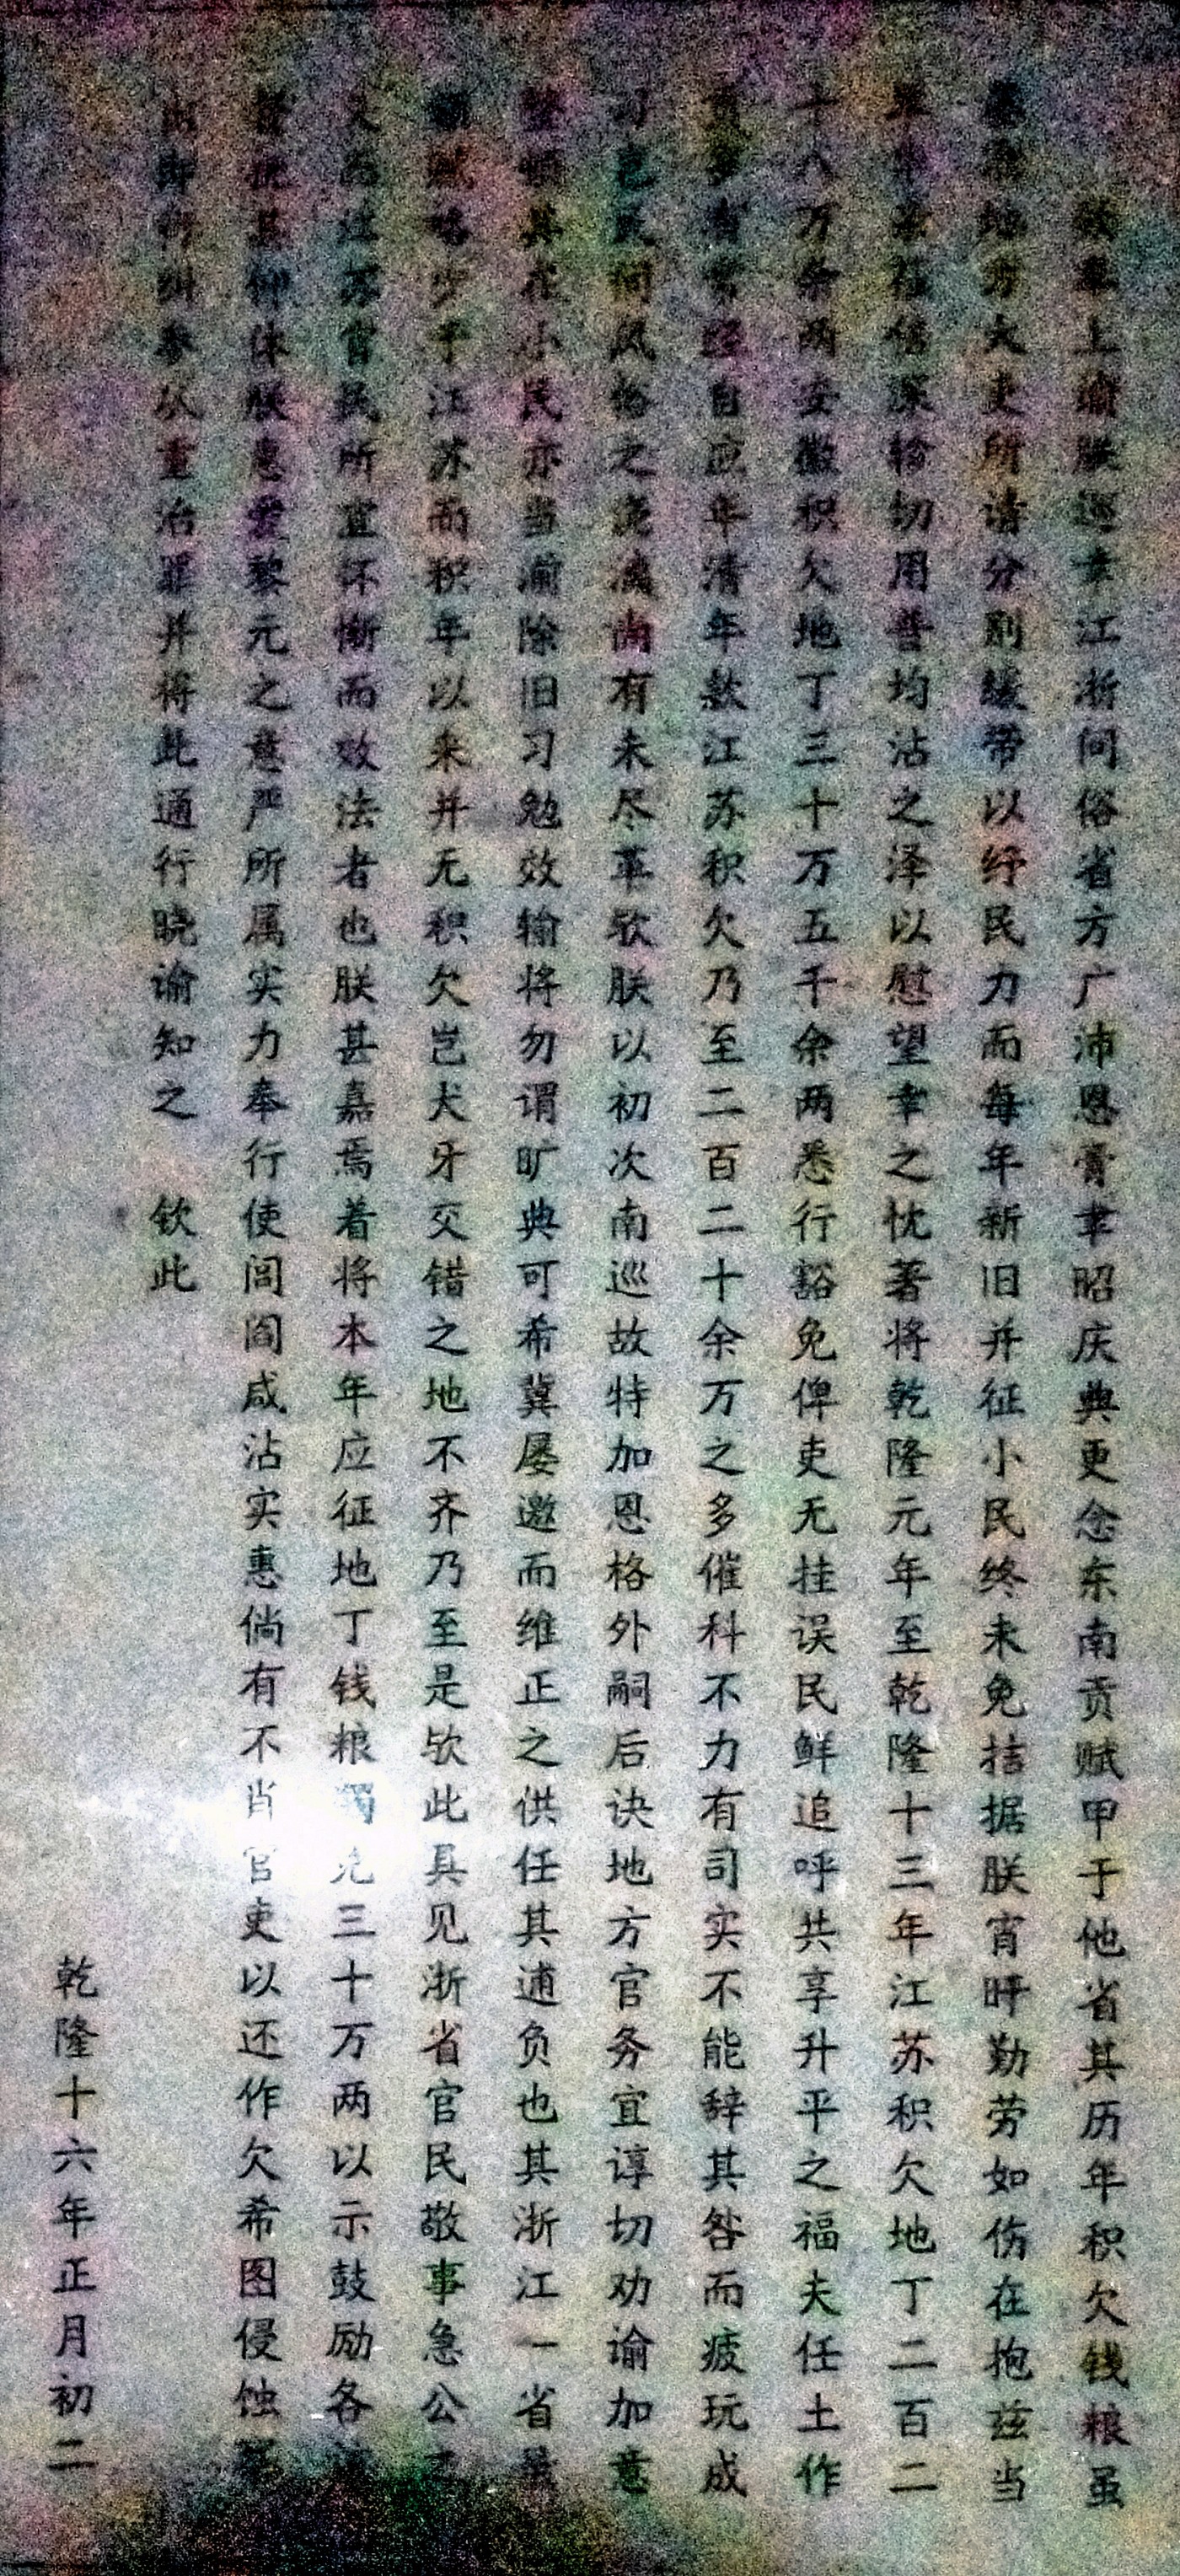 上谕朕巡幸江浙问俗省方广沛恩膏聿昭庆典更念东南贡赋甲于他省其历年积欠钱粮虽
地方大吏所请分别缓带以纾民力而每年新旧并征小民终未免拮据朕宵旰勤劳如伤在抱兹当
切用普均沾之泽以慰望幸之忱著将乾隆元年至乾隆十三年江苏积欠地丁二百二
十八万余两安徽积欠地丁三十万五千余两悉行豁免俾吏无挂误民鲜追呼共享升平之福夫任土作
自应年清年款江苏积欠乃至二百二十余万之多催科不力有司实不能辞其咎而疲玩成
民间风俗之浇漓尚有未尽革欤朕以初次南巡故特加恩格外嗣后诀地方官务宜谆切劝谕加意
其在小民亦当湔除旧习勉效输将勿谓旷典可希冀屡邀而维正之供任其逋负也其浙江一省
少于江苏而积年以来并无积欠岂犬牙交错之地不齐乃至是欤此具见浙省官民敬事急公
官民所宜怀惭而效法者也朕甚嘉焉着将本年应征地丁钱粮蠲免三十万两以示鼓励各
体朕惠爱黎元之意严所属实力奉行使闾阎咸沾实惠倘有不肖官吏以还作欠希图侵蚀
参从重治罪并将此通行晓谕知之 钦此
乾隆十六年正月初二